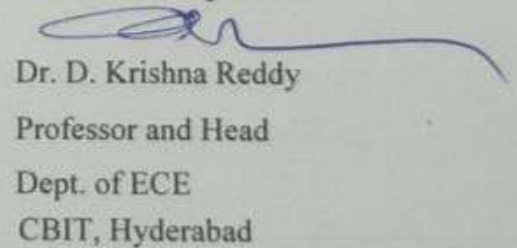 Dr. D. Krishna Reddy
Professor and Head
Dept. of ECE
CBIT, Hyderabad